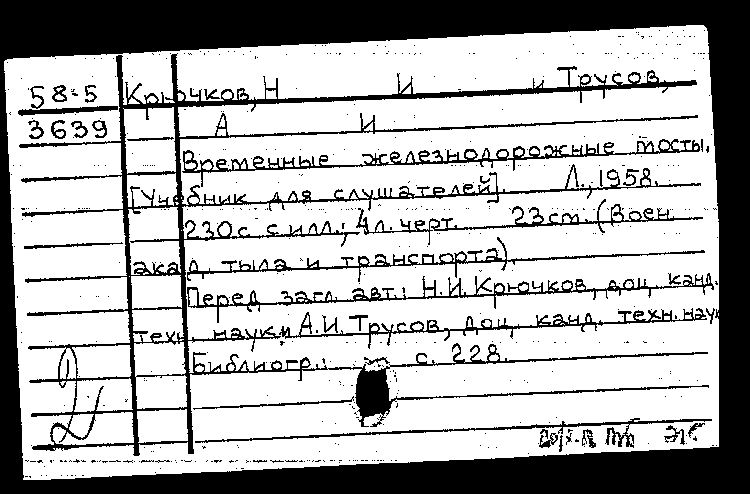 58-5 Крючков, Н И и Трусов,
3639 А И
Временные железнодорожные мосты.
[Учебник для слушателей]. Л., 1958.
230 с. с илл.; 4 л. черт. 23 см. (Воен.
акад. тыла и транспорта).
Перед загл. авт.: Н.И. Крючков, доц. канд.
техн. наук и А.И. Трусов, доц. канд. техн. наук
Библиогр.: с. 228.
2